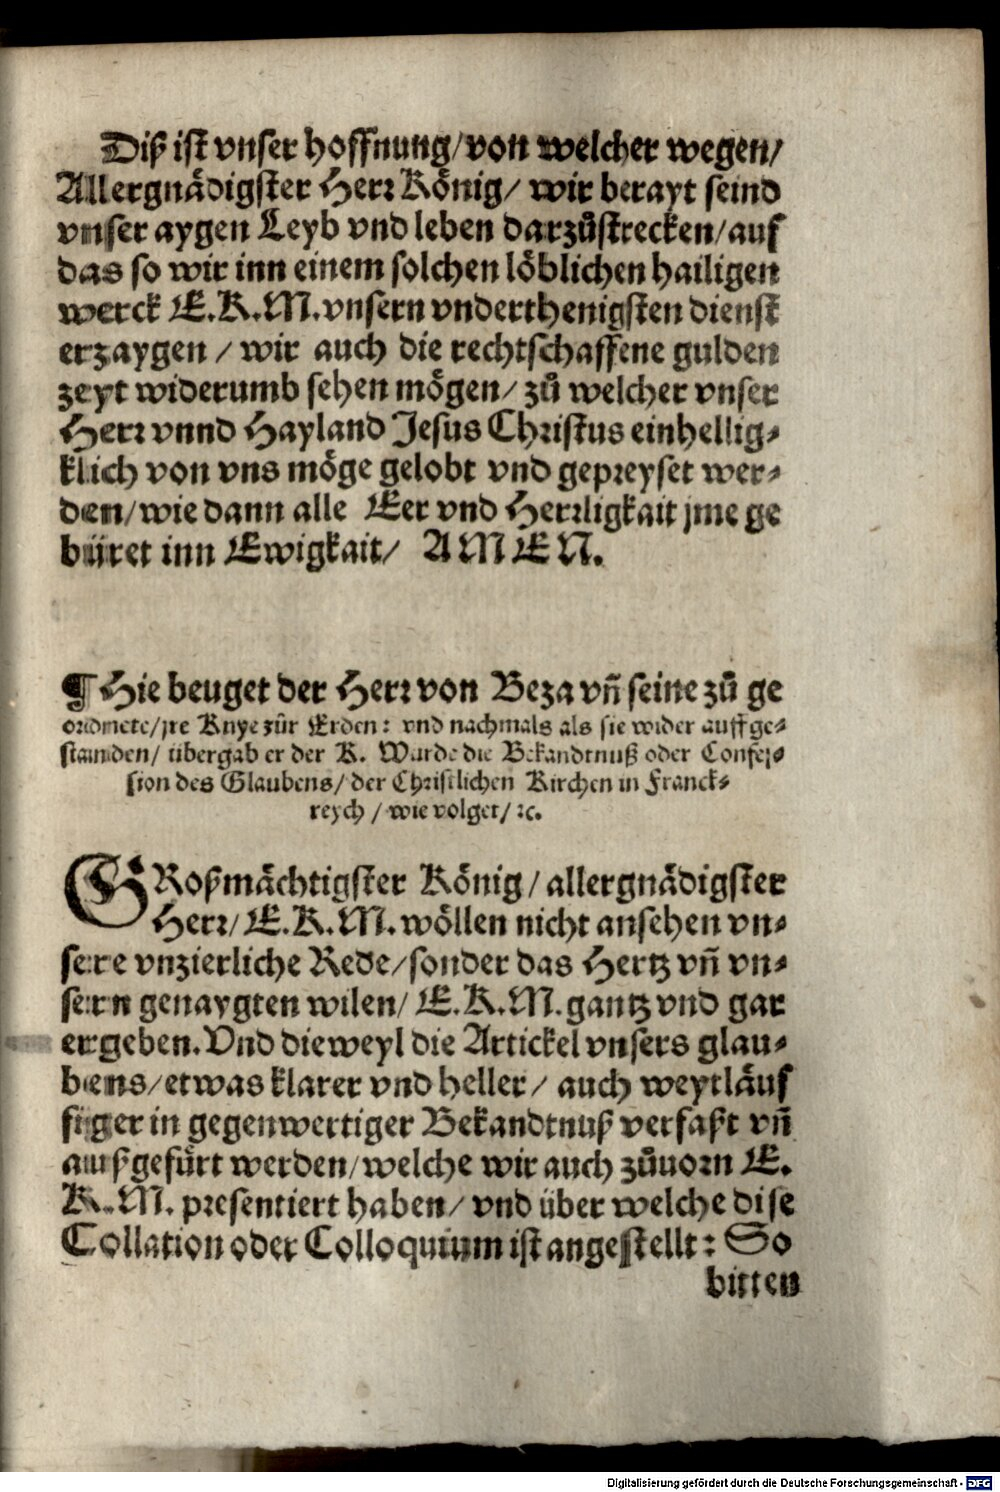 Diß ist vnser hoffnung/von welcher wegen/
Allergnädigster Herr König/ wir berayt seind
vnser aygen Leyb vnd leben darzůstrecken/auf
das so wir inn einem solchen löblichen hailigen
werck E.K.M.vnsern vnderthenigsten dienst
erzaygen / wir auch die rechtschaffene gulden
zeyt widerumb sehen mögen/ zů welcher vnser
Herr vnnd Hayland Jesus Christus einhellig⸗
klich von vns möge gelobt vnd gepreyset wer⸗
den/wie dann alle Eer vnd Herrligkait jme ge
büret inn Ewigkait/ AMEN.
¶ Hie beuget der Herr von Beza vñ seine zů ge
ordnete/jre Knye zůr Erden: vnd nachmals als sie wider auffge⸗
standen/ übergab er der K. Wurde die Bekandtnuß oder Confes⸗
sion des Glaubens/ der Christlichen Kirchen in Franck⸗
reych / wie volget/ ꝛc.
GRoßmächtigster König/ allergnädigster
Herr/ E.K.M. wöllen nicht ansehen vn⸗
sere vnzierliche Rede/sonder das Hertz vñ vn⸗
sern genaygten wilen/ E.K.M.gantz vnd gar
ergeben.Vnd dieweyl die Artickel vnsers glau⸗
bens/etwas klarer vnd heller/ auch weytläuf
figer in gegenwertiger Bekandtnuß verfaßt vñ
außgefürt werden/welche wir auch zůuorn E.
K.M. presentiert haben/ vnd über welche dise
Collation oder Colloquium ist angestellt: So
bitten
Digitalisierung gefördert durch die Deutsche Forschungsgemeinschaft - DFG